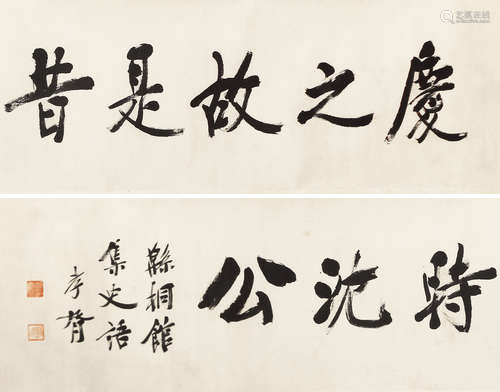 慶之故是昔
時沈公
緜桐館
集史語
孝胥